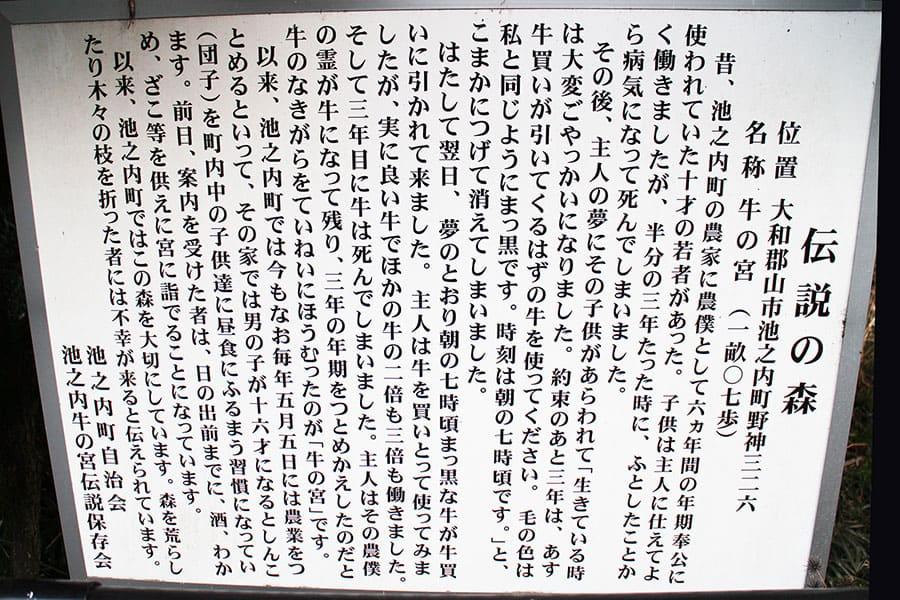 伝説の森
位置 大和郡山市池之内町野神三二六
名称 牛の宮 (一畝〇七歩)
昔、池之内町の農家に農僕として六ヵ年間の年期奉公に
使われていた十才の若者があった。子供は主人に仕えてよ
く働きましたが、半分の三年たった時に、ふとしたことか
ら病気になって死んでしまいました。
その後、主人の夢にその子供があらわれて「生きている時
は大変ごやっかいになりました。約束のあと三年は、あす
牛買いが引いてくるはずの牛を使ってください。毛の色は
私と同じようにまっ黒です。時刻は朝の七時頃です。」と、
こまかにつげて消えてしまいました。
はたして翌日、夢のとおり朝の七時頃まっ黒な牛が牛買
いに引かれて来ました。主人は牛を買いとって使ってみま
したが、実に良い牛でほかの牛の二倍も三倍も働きました。
そして三年目に牛は死んでしまいました。主人はその農僕
の霊が牛になって残り、三年の年期をつとめかえしたのだと
牛のなきがらをていねいにほうむったのが「牛の宮」です。
以来、池之内町では今もなお毎年五月五日には農業をつ
とめるといって、その家では男の子が十六才になるとしんこ
(団子)を町内中の子供達に昼食にふるまう習慣になってい
ます。前日、案内を受けた者は、日の出前までに、酒、わか
め、ざこ等を供えに宮に詣でることになっています。
以来、池之内町ではこの森を大切にしています。森を荒らし
たり木々の枝を折った者には不幸が来ると伝えられています。
池之内町自治会
池之内牛の宮伝説保存会